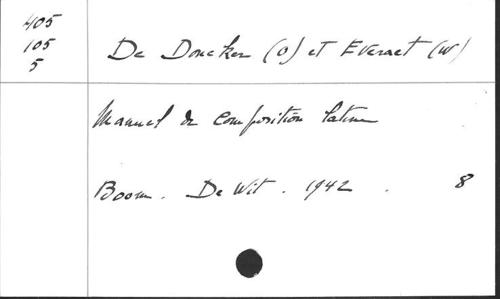 405
105
5
De Doncker (O) et Everaet (W)
Manuel de composition latine
Boom . De Wit . 1942 . 8